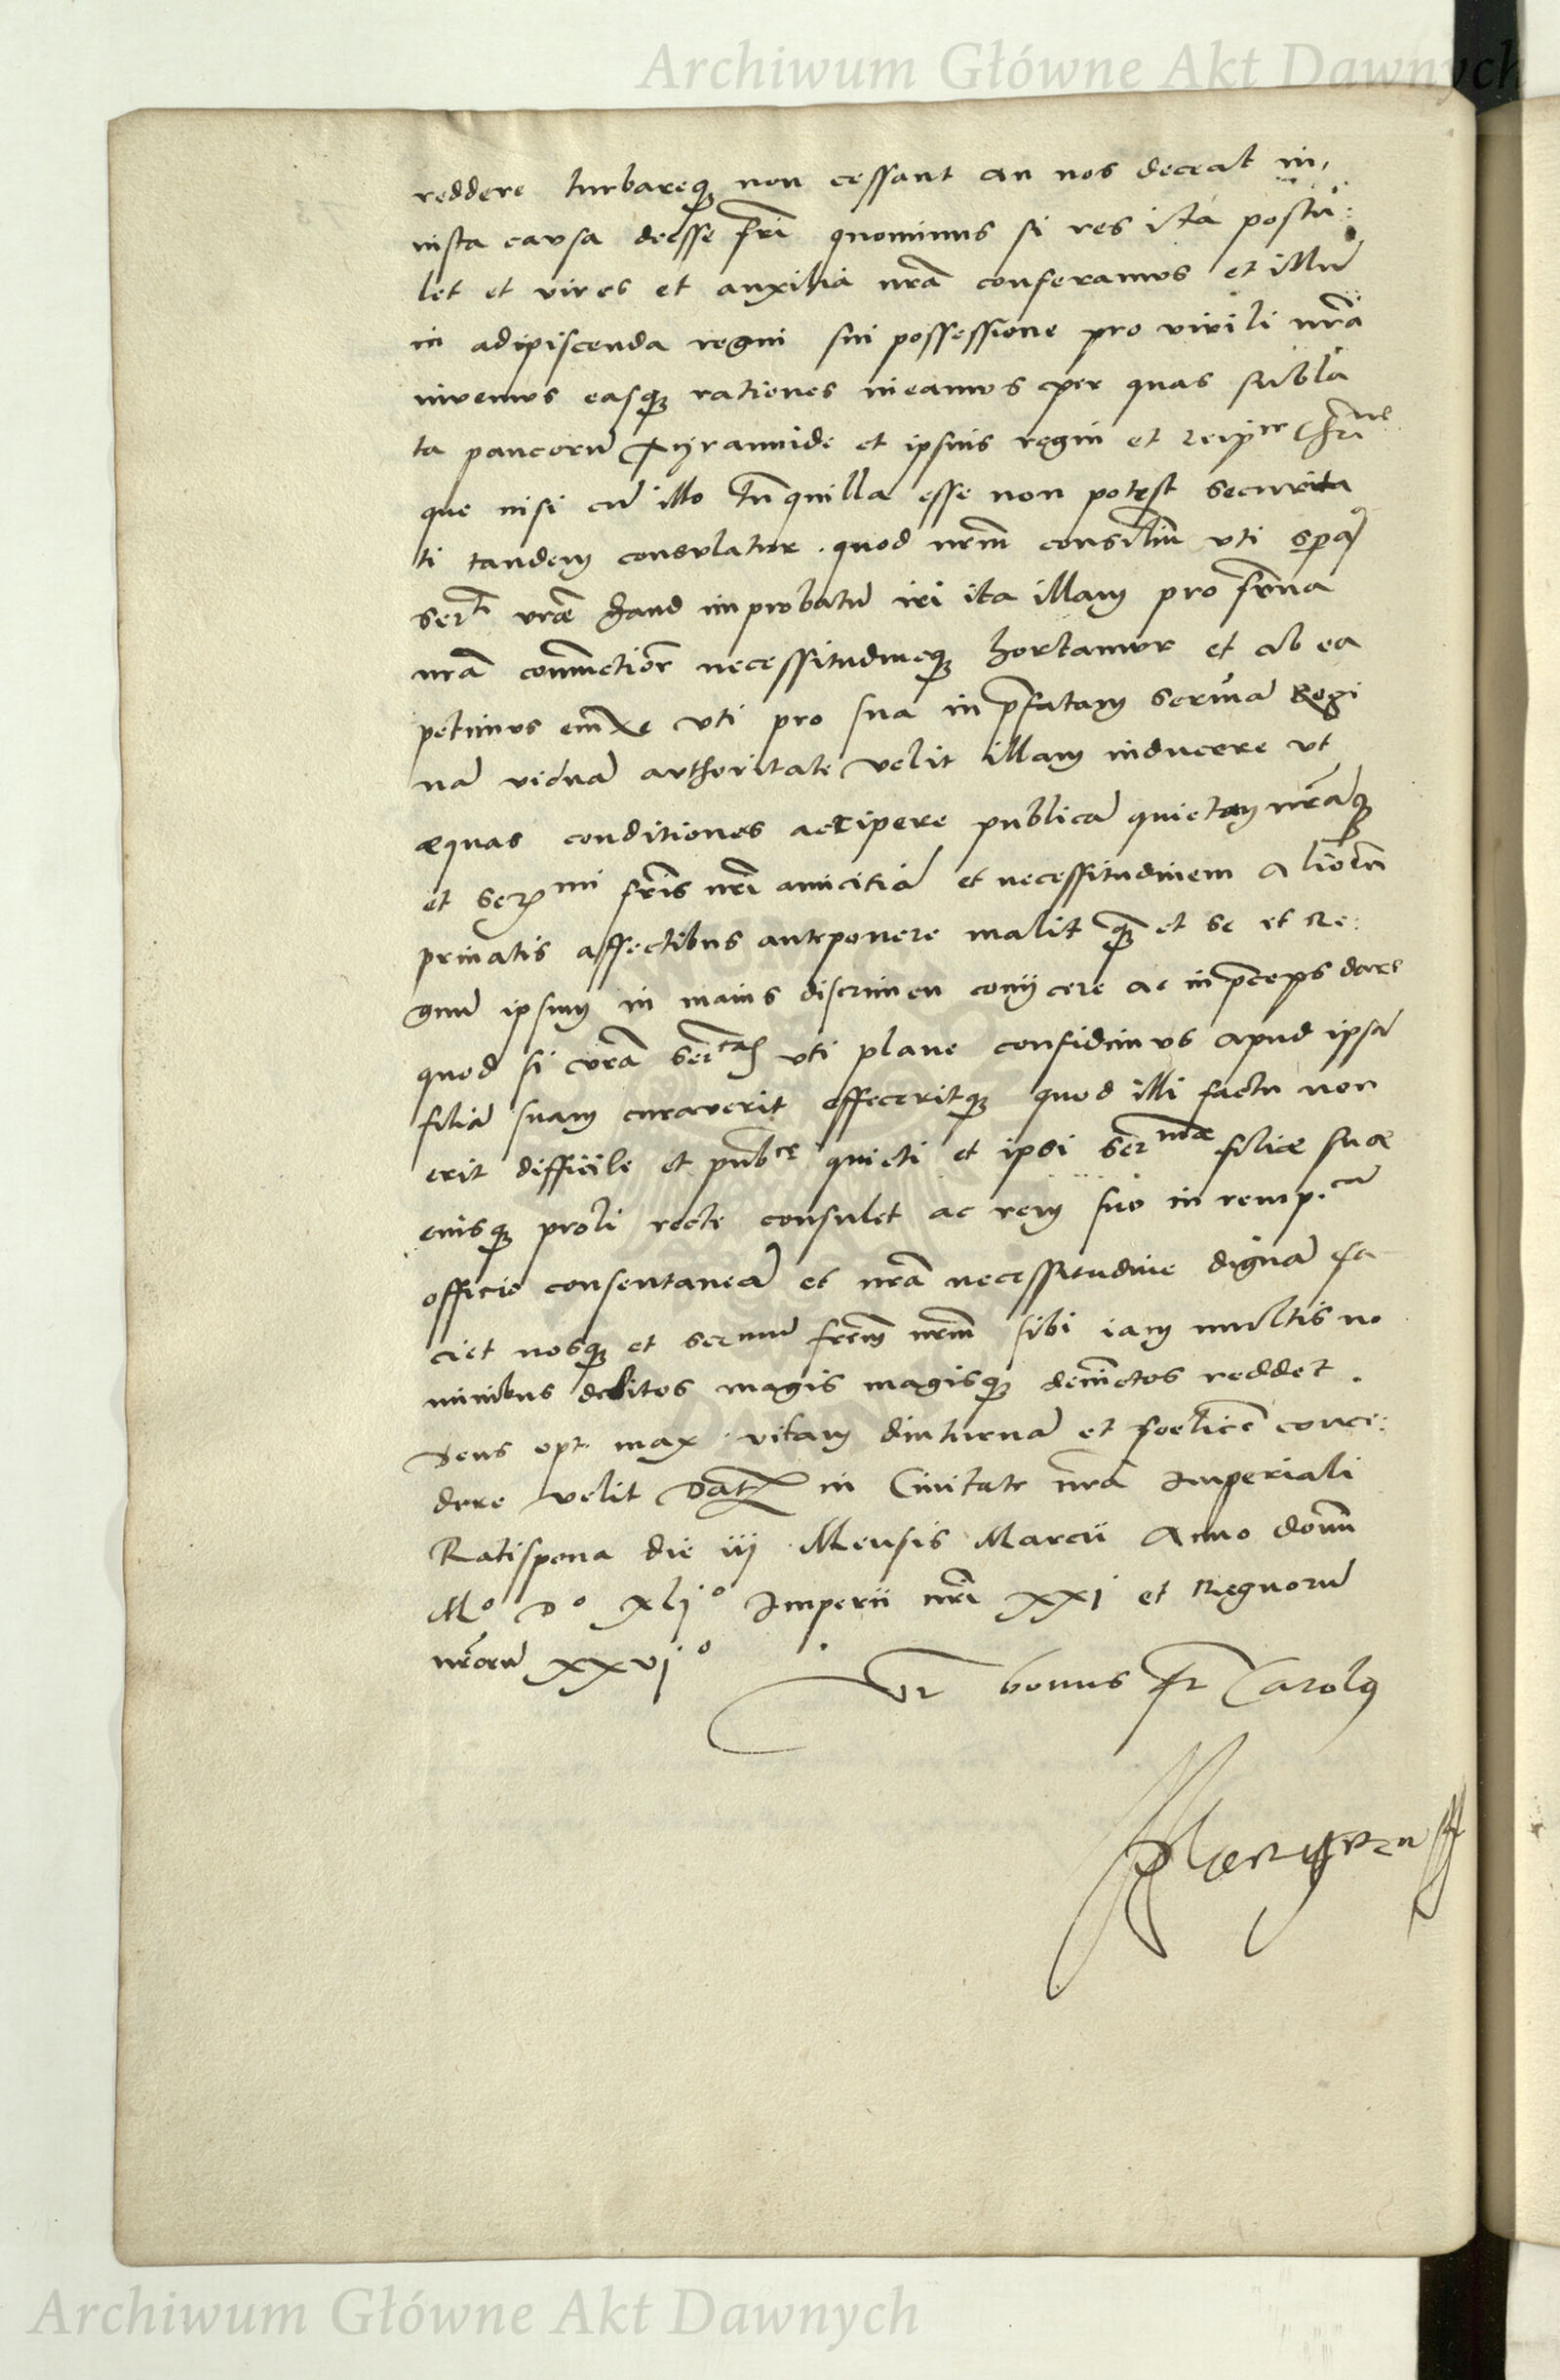 Archiwum Główne Akt Dawnych
reddere turbareq; non cessant an nos deceat in,
iusta causa deesse fri quominus si res ita postu:
let et vires et auxilia nrã conferamus et illũ
in adipiscenda regni sui possessione pro virili nrã
iuvemus easq; rationes ineamus per quas subla
ta paucorũ tyrannide et ipsius regni et reip
que nisi cũ illo trãquilla esse non potest securita
ti tandem consulatur. quod nrm̃ consiliũ uti
serti vrae haud improbatũ iri ita illam pro
nrã coniunctiõe necessitudineq; hortamur et ab ea
petimus enixe uti pro sua in p̃fatam sermã Regi
nã viduã authoritate velit illam inducere ut
æquas conditiones accipere publicã quietem nrãq;
et sermi fris nri amicitiã et necessitudinem
privatis affectibus anteponere malit q̃ et se et Re:
gnũ ipsum in maius discrimen coniicere ac in p̃ceps dare
quod si vrã sertas uti plane confidimus apud ipsã
filiã suam curaverit effeceritq; quod illi factu non
erit difficile et pub.ce quieti et ipsi sermæ filiæ suæ
eiusq; proli recte consulet ac rem suo in remp.cã
officio consentaneã et nrã necessitudine dignã fa
ciet nosq; et sermũ frẽm nrm̃ sibi iam multis no
minibus debitos magis magisq; devinctos reddet.
Deus opt. max. vitam diuturnã et foelicẽ conce:
dere velit Dat in Civitate nrã Imperiali
Ratispona die iij Mensis Marcii Anno domĩ
Mº Dº xljº Imperii nri xxj et Regnorũ
nrorũ xxvjº
Vr bonus fr Carolus
Archiwum Główne Akt Dawnych